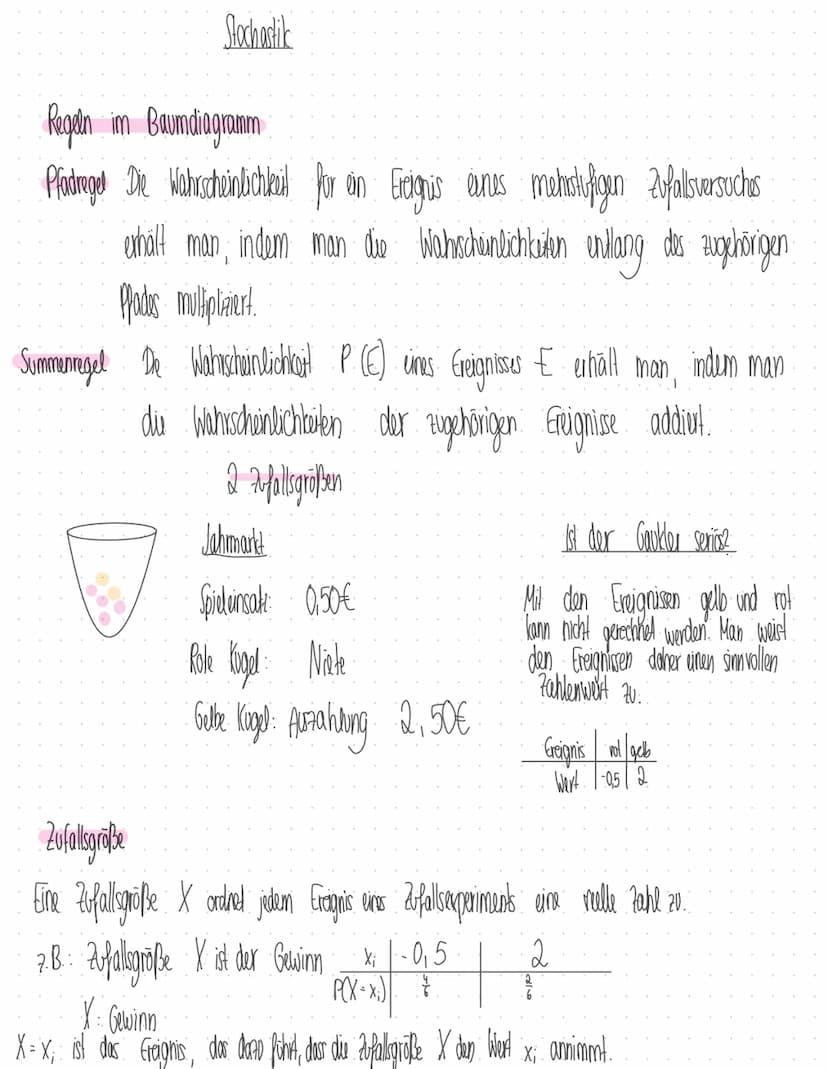 Stochastik
Regeln im Baumdiagramm
Pfadregel Die Wahrscheinlichkeit für ein Ereignis eines mehrstufigen Zufallsversuches
erhält man, indem man die Wahrscheinlichkeiten entlang des zugehörigen
Pfades multipliziert.
Summenregel De Wahrscheinlichkeit P(E) eines Ereignisses E erhält man, indem man
die Wahrscheinlichkeiten der zugehörigen Ereignisse addiert.
2 Zufallsgrößen
Jahrmarkt
Spieleinsatz: 0,50€
Rote Kugel: Niete
Gelbe Kugel: Auszahlung 2,50€
Ist der Gaukler seriös?
Mit den Ereignissen gelb und rot
kann nicht gerechnet werden. Man weist
den Ereignissen daher einen sinnvollen
Zahlenwert zu.
Ereignis rot gelb
Wert -0,5 2
Zufallsgröße
Eine Zufallsgröße X ordnet jedem Ereignis eines Zufallsexperiments eine reelle Zahl zu.
z.B.: Zufallsgröße X ist der Gewinn xᵢ -0,5 2
P(X=xᵢ) 4/6 2/6
X: Gewinn
X=xᵢ ist das Ereignis, das dazu führt, dass die Zufallsgröße X den Wert xᵢ annimmt.